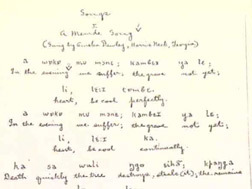 Songs
I
A Mende Song
(Sung by Amelia Dawley, Harris Neck, Georgia)
a wɔkɔ mu mɔne; kambɛi ya le;
In the evening we suffer; the grave not yet;
li, lɛɛi tɔmbɛ.
heart, be cool perfectly.
a wɔkɔ mu mɔne; kambɛi ya le;
In the evening we suffer; the grave not yet;
li, lɛɛi ka.
heart, be cool continually.
ha sa wuli ŋgo sihã; kpaŋga
Death quickly the tree destroys, steals (it); the remains